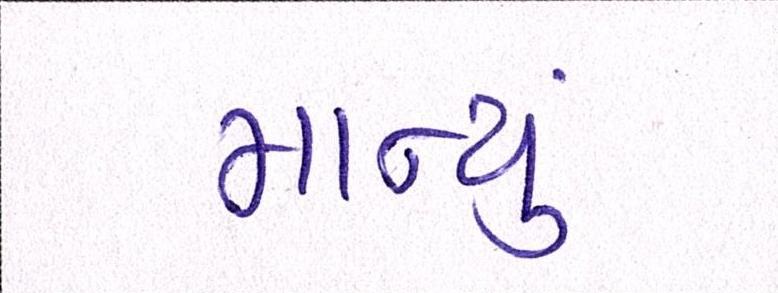 માન્યું